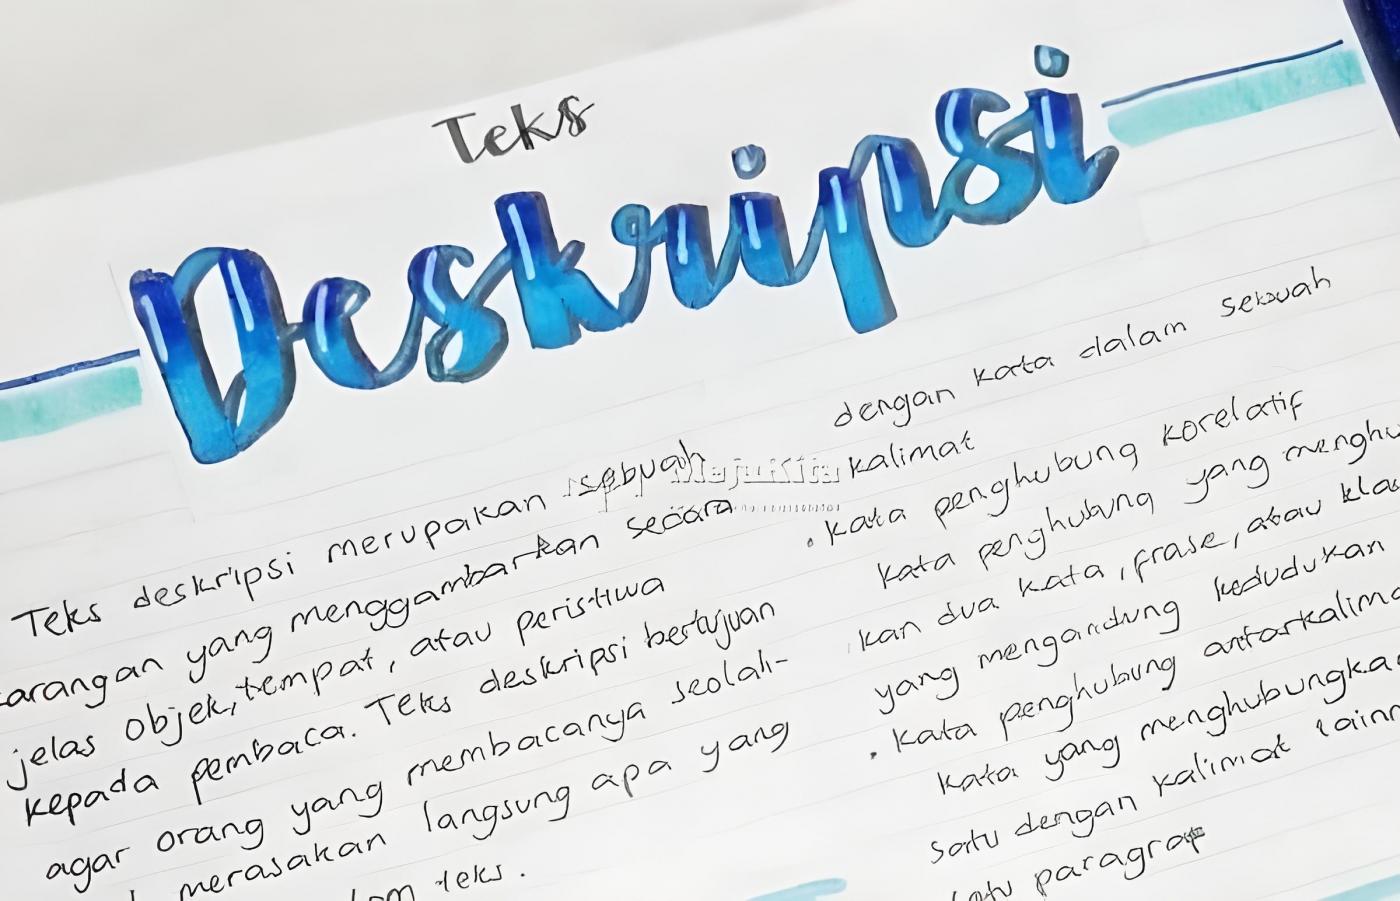 Teks
Deskripsi
Teks deskripsi merupakan sebuah
karangan yang menggambarkan secara
jelas objek, tempat, atau peristiwa
kepada pembaca. Teks deskripsi bertujuan
agar orang yang membacanya seolah-
merasakan langsung apa yang
teks.
dengan kata dalam sebuah
kalimat
. kata penghubung korelatif
kata penghubung yang menghu
kan dua kata, frase, atau klau
yang mengandung kedudukan
. kata penghubung antarkalima
kata yang menghubungka
satu dengan kalimat lainn
satu paragraf
MajuKita